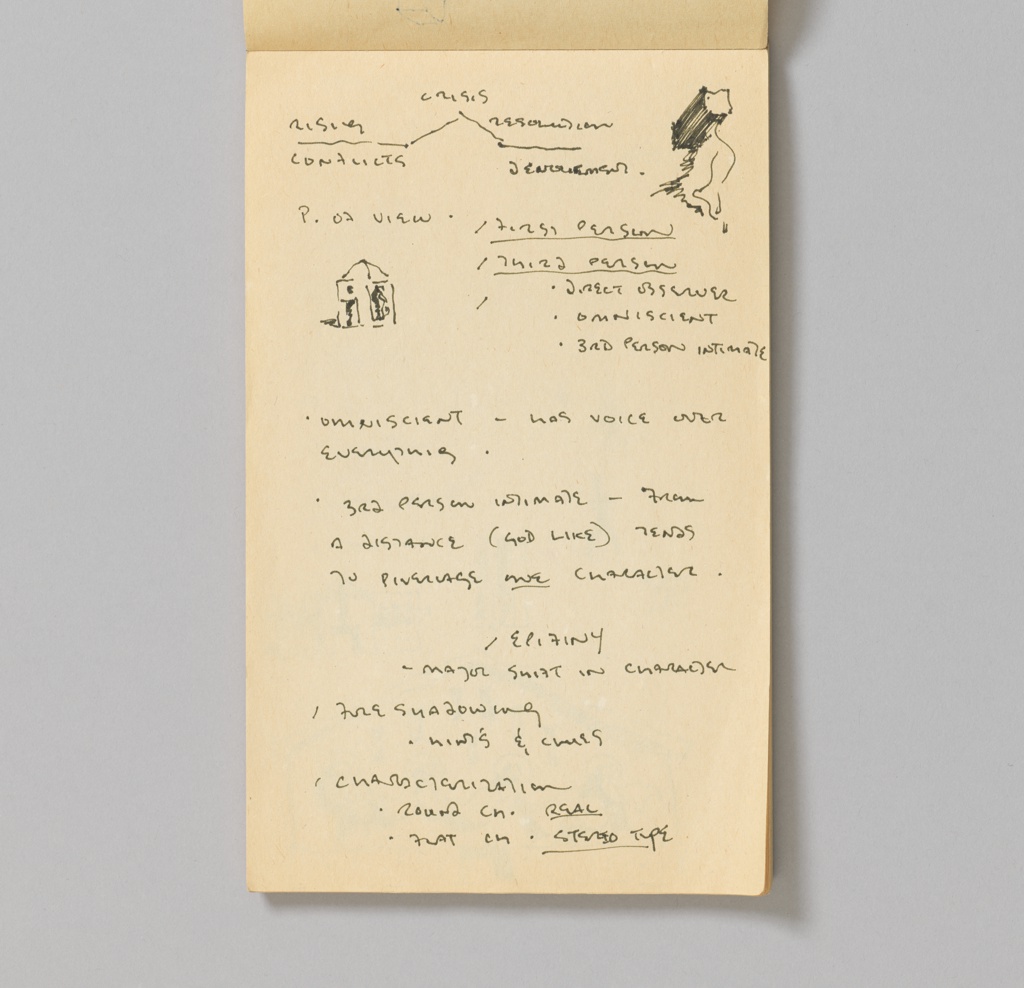 CRISIS
RISING RESOLUTION
CONFLICTS DENOUEMENT.
P. OF VIEW · / FIRST PERSON
/ THIRD PERSON
· DIRECT OBSERVER
/
· OMNISCIENT
· 3RD PERSON INTIMATE
· OMNISCIENT – HAS VOICE OVER
EVERYTHING .
· 3RD PERSON INTIMATE – FROM
A DISTANCE (GOD LIKE) TENDS
TO ONE CHARACTER .
/ EPIFINY
– MAJOR SHIFT IN CHARACTER
/ FORESHADOWING
· HINTS & CLUES
/ CHARACTERIZATION
· ROUND CH. REAL
· FLAT CH · STEREO TYPE